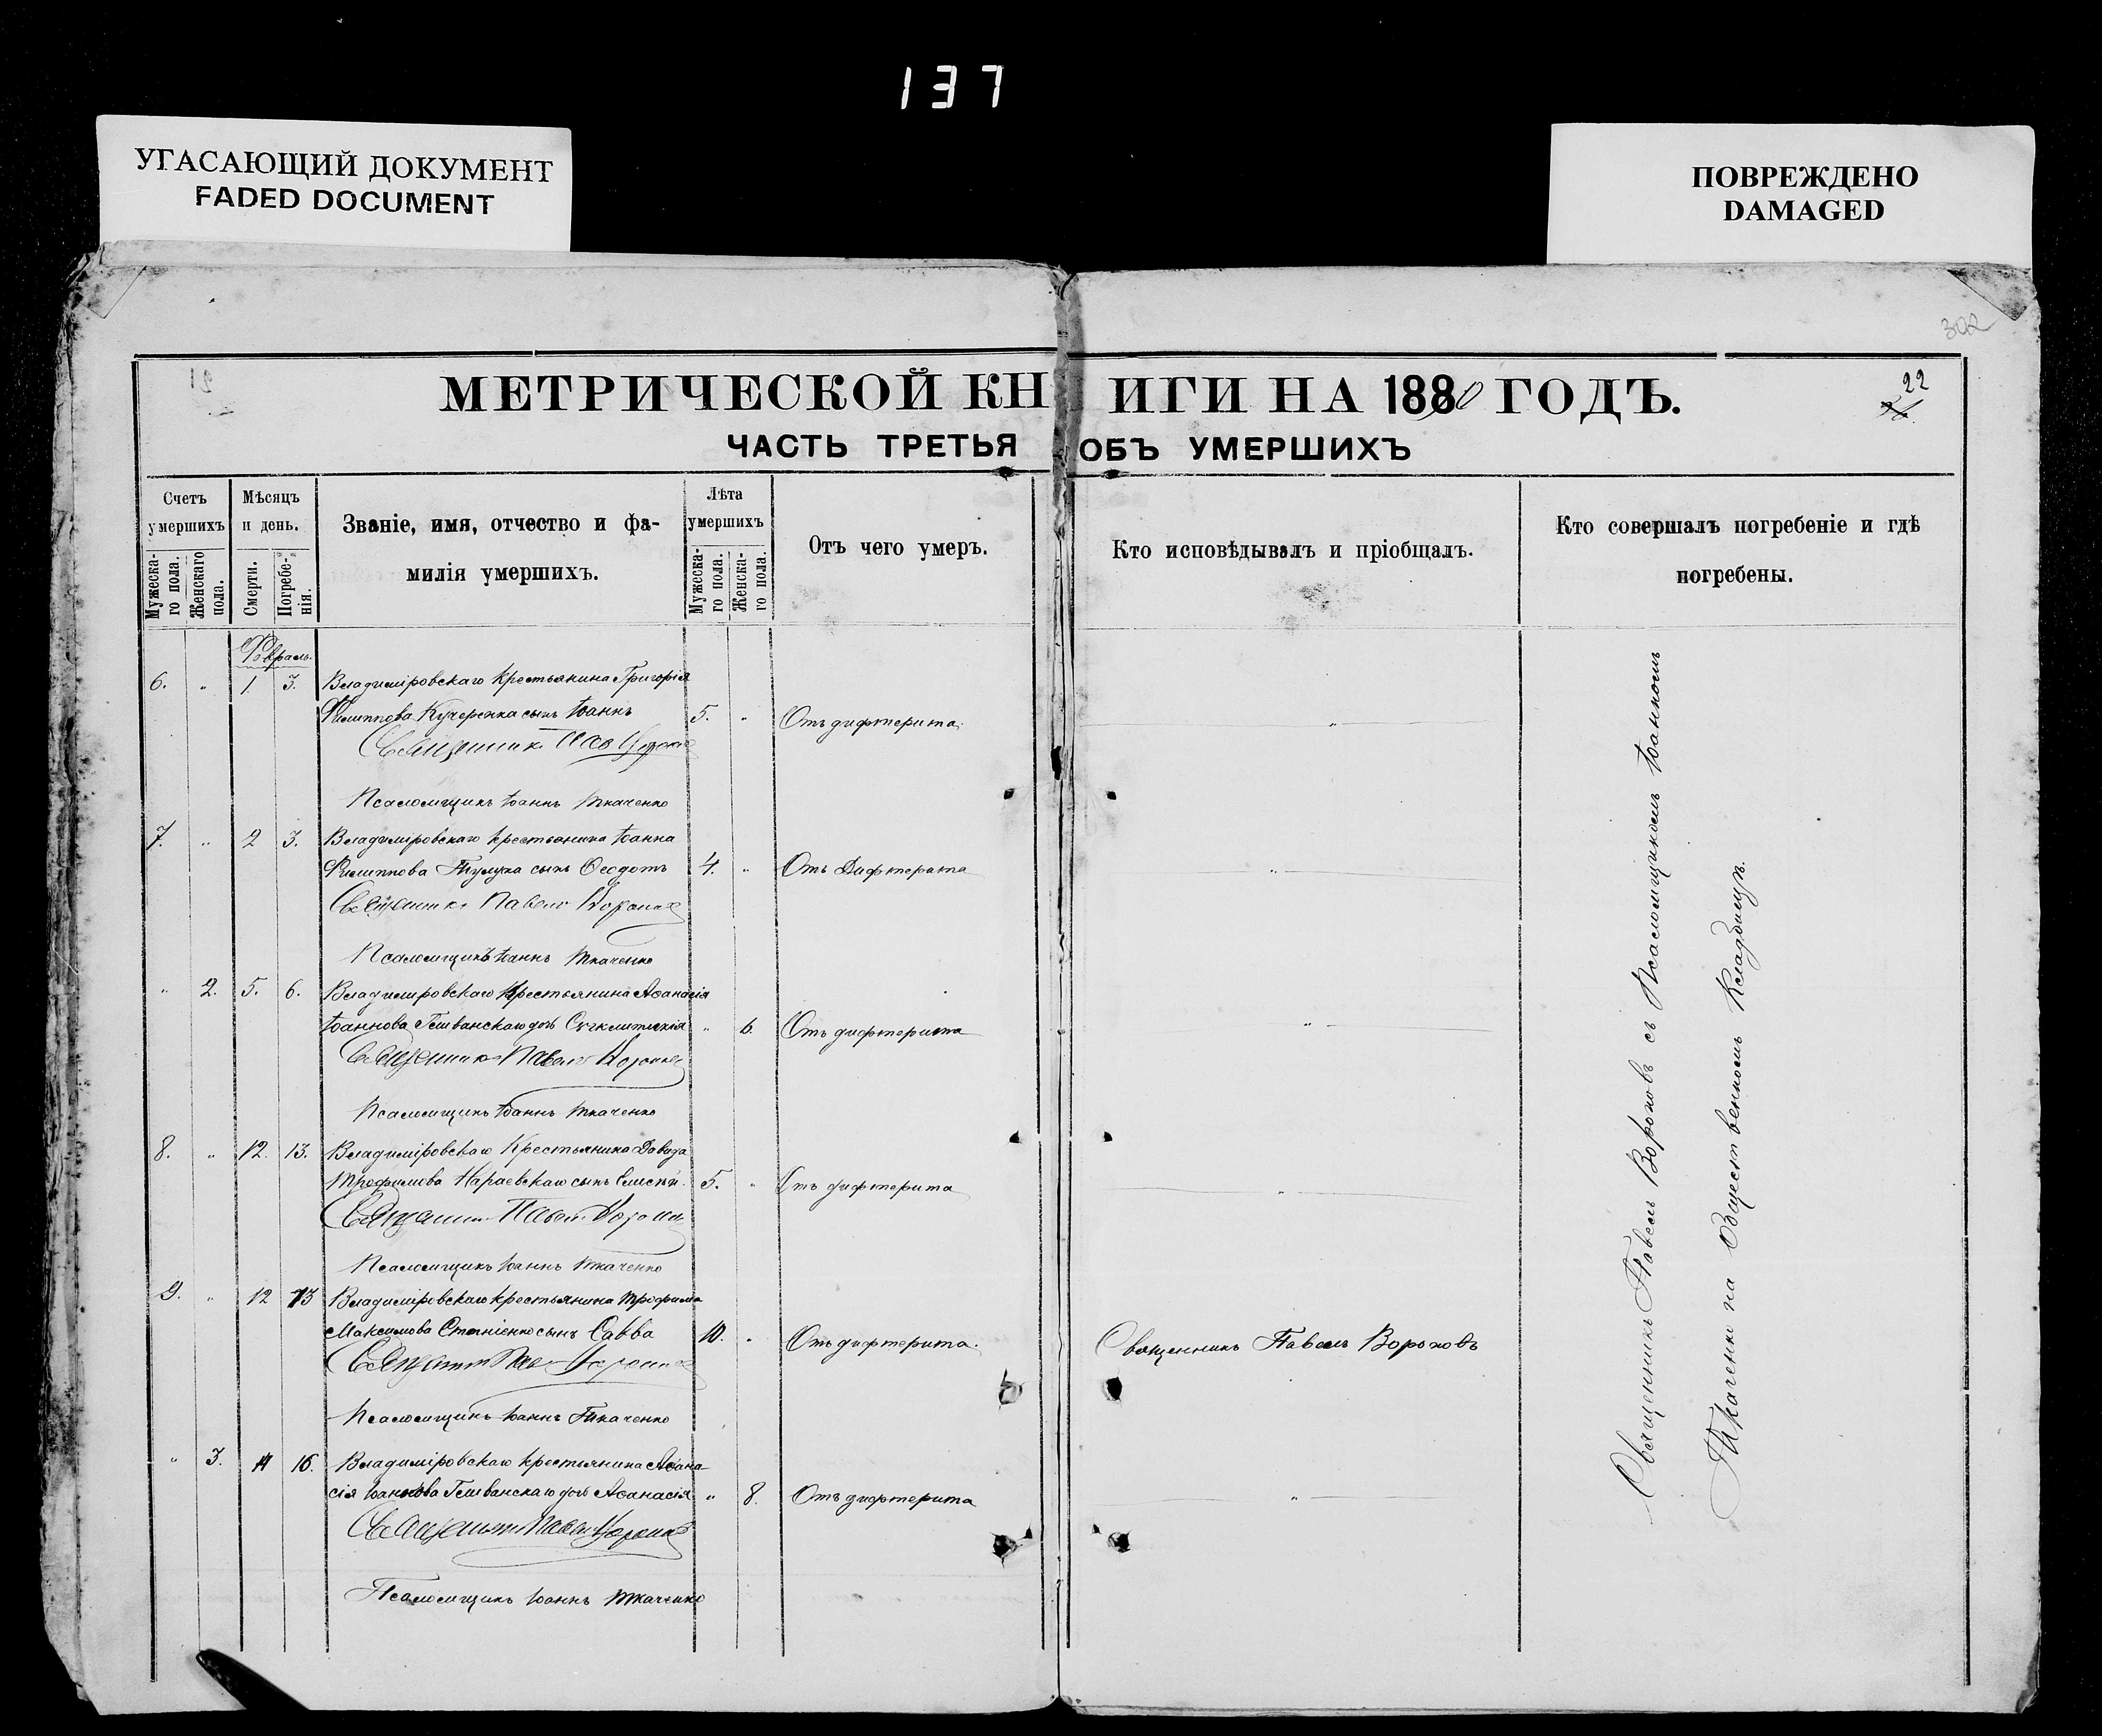 137
УГАСАЮЩИЙ ДОКУМЕНТ
FADED DOCUMENT
ПОВРЕЖДЕНО
DAMAGED
302
22
МЕТРИЧЕСКОЙ КНИГИ НА 1880 ГОДЪ.
ЧАСТЬ ТРЕТЬЯ ОБЪ УМЕРШИХЪ
Счетъ умершихъ
Мужеска-го пола.
Женскаго пола.
Мѣсяцъ и день.
Смерти.
Погребе-нія.
Званіе, имя, отчество и фа-
милія умершихъ.
Лѣта умершихъ
Мужеска-го пола.
Женска-го пола.
Отъ чего умеръ.
Кто исповѣдывалъ и пріобщалъ.
Кто совершалъ погребеніе и гдѣ
погребены.
Февраль
6. " 1. 3. Владиміровскаго крестьянина Григорія
Филиппова Кучеренка сынъ Іоаннъ 5. " Отъ дифтерита. "
Священникъ
Псаломщикъ Іоаннъ Ткаченко
7. " 2 3. Владиміровскаго крестьянина Іоанна
Филиппова сынъ Ѳеодотъ 4. " Отъ Дифтерита "
Священникъ Павелъ
Псаломщикъ Іоаннъ Ткаченко
" 2. 5. 6. Владиміровскаго Крестьянина Аѳанасія
Іоаннова дочь " 6. Отъ дифтерита "
Священникъ Павелъ
Псаломщикъ Іоаннъ Ткаченко
8. " 12. 13. Владиміровскаго Крестьянина Давида
Трофимова сынъ Елисей. 5. " Отъ дифтерита "
Священникъ Павелъ
Псаломщикъ Іоаннъ Ткаченко
9. " 12 13 Владиміровскаго крестьянина Трофима
Максимова сынъ Савва 10. " Отъ дифтерита. Священникъ Павелъ
Священникъ
Псаломщикъ Іоаннъ Ткаченко
" 3. 14 16. Владиміровскаго крестьянина Аѳана-
сія Іоаннова дочь Аѳанасія " 8. Отъ дифтерита "
Священникъ
Псаломщикъ Іоаннъ Ткаченко
Священникъ Павелъ съ Псаломщикомъ Іоанномъ
Ткаченко на Общественномъ Кладбищѣ.